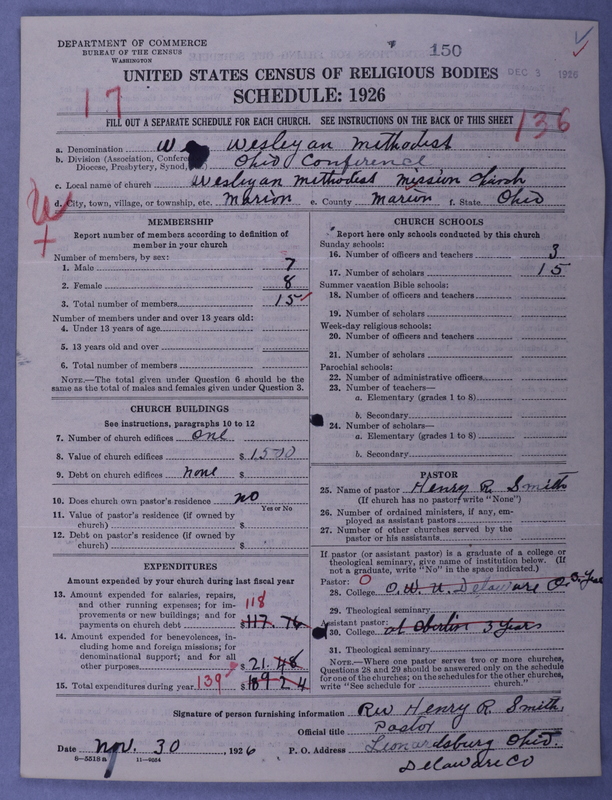 DEPARTMENT OF COMMERCE
BUREAU OF THE CENSUS
WASHINGTON
150
DEC 3 1926
UNITED STATES CENSUS OF RELIGIOUS BODIES
SCHEDULE: 1926
17
136
FILL OUT A SEPARATE SCHEDULE FOR EACH CHURCH. SEE INSTRUCTIONS ON THE BACK OF THIS SHEET
a. Denomination Wesleyan Methodist
b. Division (Association, Conference, Diocese, Presbytery, Synod, etc.) Ohio Conference
c. Local name of church Wesleyan Methodist Mission Church
d. City, town, village, or township, etc. Marion e. County Marion f. State Ohio
MEMBERSHIP
Report number of members according to definition of
member in your church
Number of members, by sex:
1. Male 7
2. Female 8
3. Total number of members 15
Number of members under and over 13 years old:
4. Under 13 years of age
5. 13 years old and over
6. Total number of members
NOTE.—The total given under Question 6 should be the
same as the total of males and females given under Question 3.
CHURCH BUILDINGS
See instructions, paragraphs 10 to 12
7. Number of church edifices one
8. Value of church edifices $ 1500
9. Debt on church edifices none $
10. Does church own pastor's residence? no
Yes or No
11. Value of pastor's residence (if owned by
church) $
12. Debt on pastor's residence (if owned by
church) $
EXPENDITURES
Amount expended by your church during last fiscal year
13. Amount expended for salaries, repairs,
and other running expenses; for im-
provements or new buildings; and for
payments on church debt 118 $ 117.76
14. Amount expended for benevolences, in-
cluding home and foreign missions; for
denominational support; and for all
other purposes $ 21.48
15. Total expenditures during year 139 $ 139 24
CHURCH SCHOOLS
Report here only schools conducted by this church
Sunday schools:
16. Number of officers and teachers 3
17. Number of scholars 15
Summer vacation Bible schools:
18. Number of officers and teachers
19. Number of scholars
Week-day religious schools:
20. Number of officers and teachers
21. Number of scholars
Parochial schools:
22. Number of administrative officers
23. Number of teachers—
a. Elementary (grades 1 to 8)
b. Secondary
24. Number of scholars—
a. Elementary (grades 1 to 8)
b. Secondary
PASTOR
25. Name of pastor Henry R. Smith
(If church has no pastor, write "None")
26. Number of ordained ministers, if any, em-
ployed as assistant pastors
27. Number of other churches served by the
pastor or his assistants
If pastor (or assistant pastor) is a graduate of a college or
theological seminary, give name of institution below. (If
not a graduate, write "No" in the space indicated.)
Pastor: O
28. College O. W. U. Delaware O.
29. Theological seminary
Assistant pastor:
30. College at Oberlin 3 years
31. Theological seminary
NOTE.—Where one pastor serves two or more churches,
Questions 28 and 29 should be answered only on the schedule
for one of the churches; on the schedules for the other churches,
write "See schedule for church."
Signature of person furnishing information Rev Henry R. Smith
Official title Pastor
Date Nov. 30, 1926 P. O. Address Leonardsburg Ohio.
8—5518a 11—9054
Delaware Co